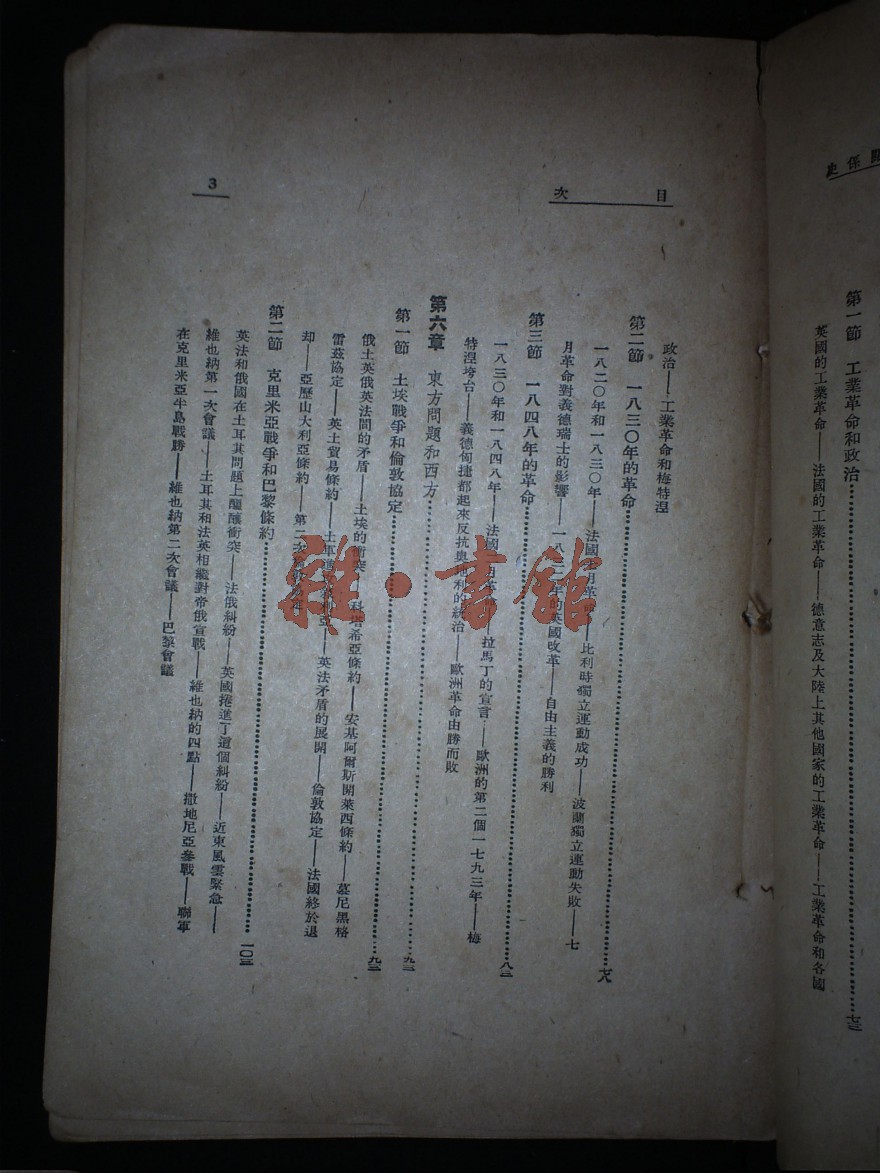 關係史
第一節 工業革命和政治……七三
英國的工業革命——法國的工業革命——德意志及大陸上其他國家的工業革命——工業革命和各國
目次
3
政治——工業革命和梅特涅
第二節 一八三〇年的革命……七八
一八二〇年和一八三〇年——法國七月革命——比利時獨立運動成功——波蘭獨立運動失敗——七
月革命對義德瑞士的影響——一八三二年的英國改革——自由主義的勝利
第三節 一八四八年的革命……八二
一八三〇年和一八四八年——法國二月革命——拉馬丁的宣言——歐洲的第二個一七九三年——梅
特涅垮台——義德匈捷都起來反抗奧地利的統治——歐洲革命由勝而敗
第六章 東方問題和西方……九二
第一節 土埃戰爭和倫敦協定……九二
俄土英俄英法間的矛盾——土埃的衝突——科塔希亞條約——安基阿爾斯開萊西條約——慕尼黑格
雷茲協定——英土貿易條約——土軍進——英法矛盾的展開——倫敦協定——法國終於退
却——亞歷山大利亞條約——第二次
第二節 克里米亞戰爭和巴黎條約……一〇三
英法和俄國在土耳其問題上醞釀衝突——法俄糾紛——英國捲進了這個糾紛——近東風雲緊急——
維也納第一次會議——土耳其和法英相繼對帝俄宣戰——維也納的四點——撒地尼亞參戰——聯軍
在克里米亞半島戰勝——維也納第二次會議——巴黎會議
雜·書館